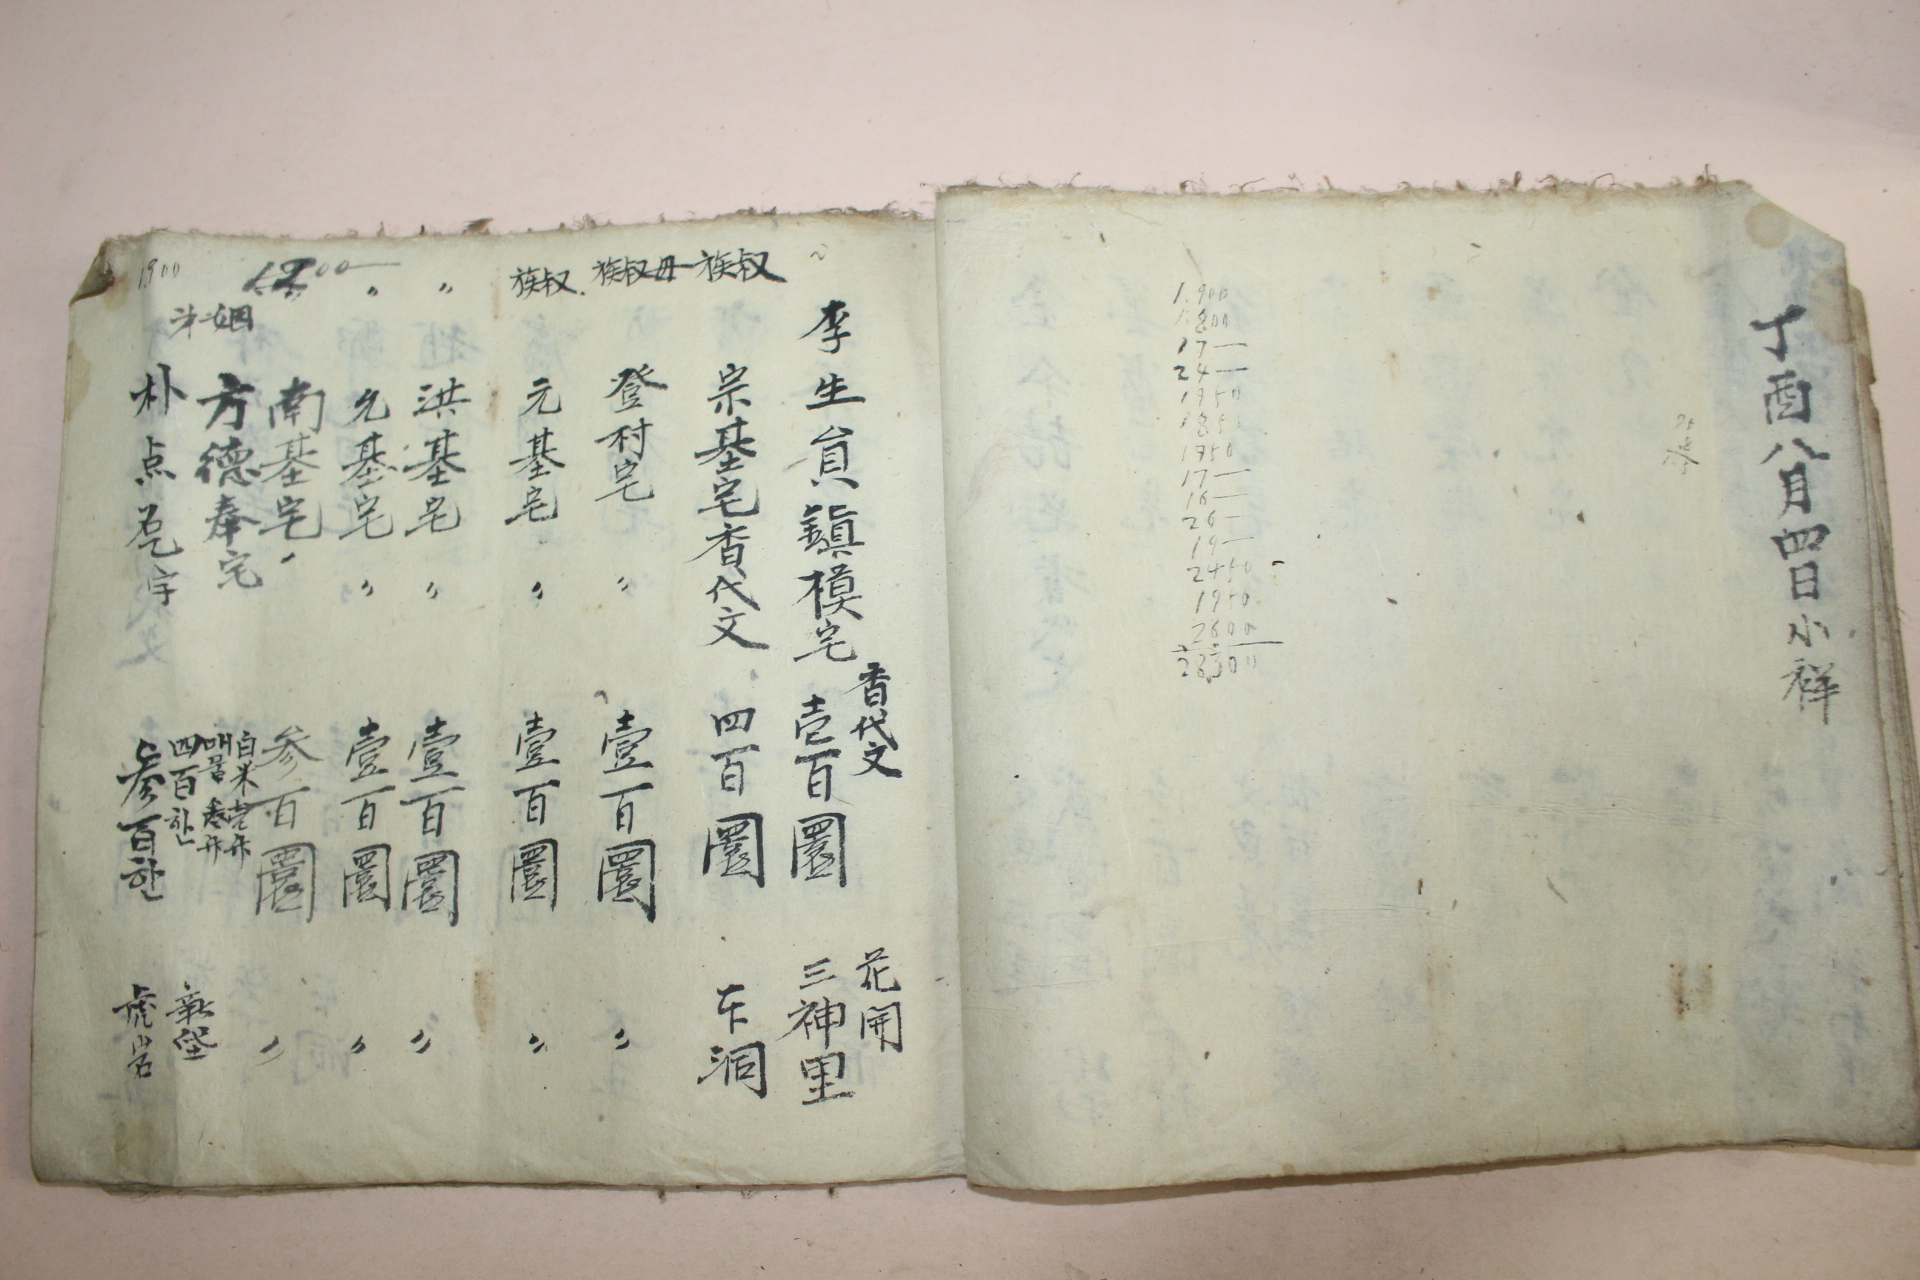 丁酉八月四日小祥
1.900
1.800
17—
24—
1950
1850
1750
17—
16—
26—
19—
2450
1950
2600
28300
李生員鎭模宅 香代文 壱百圜 花開 三神里
族叔 宗基宅香代文 四百圜 下洞
族叔母 登村宅 〃 壹百圜 〃
族叔 元基宅 〃 壹百圜 〃
〃 洪基宅 〃 壹百圜 〃
〃 允基宅 〃 壹百圜 〃
南基宅 〃 参百圜 〃
姻弟 方德奉宅 白米壱升 四百환
朴点 参百환 虎岩
1900